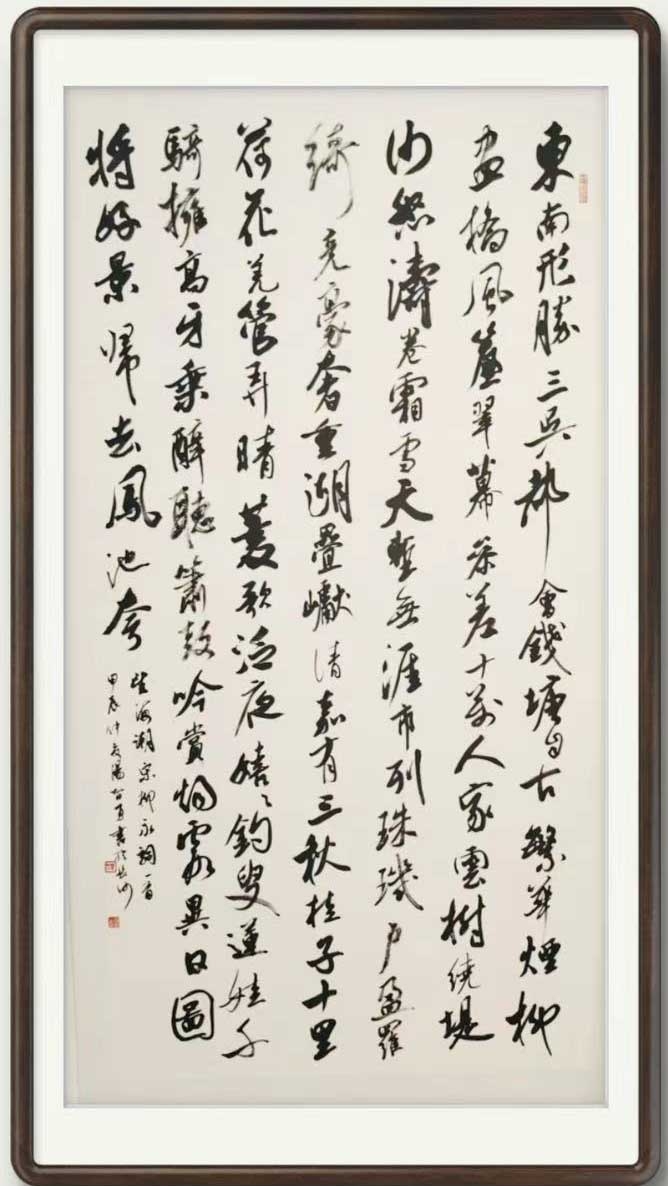 東南形勝三吳都會錢塘自古繁華煙柳
畫橋風簾翠幕參差十萬人家雲樹繞堤
沙怒濤卷霜雪天塹無涯市列珠璣戶盈羅
綺競豪奢重湖疊巘清嘉有三秋桂子十里
荷花羌管弄晴菱歌泛夜嬉嬉釣叟蓮娃千
騎擁高牙乘醉聽簫鼓吟賞煙霞異日圖
將好景歸去鳳池夸
望海潮宋柳永詞一首
甲辰仲